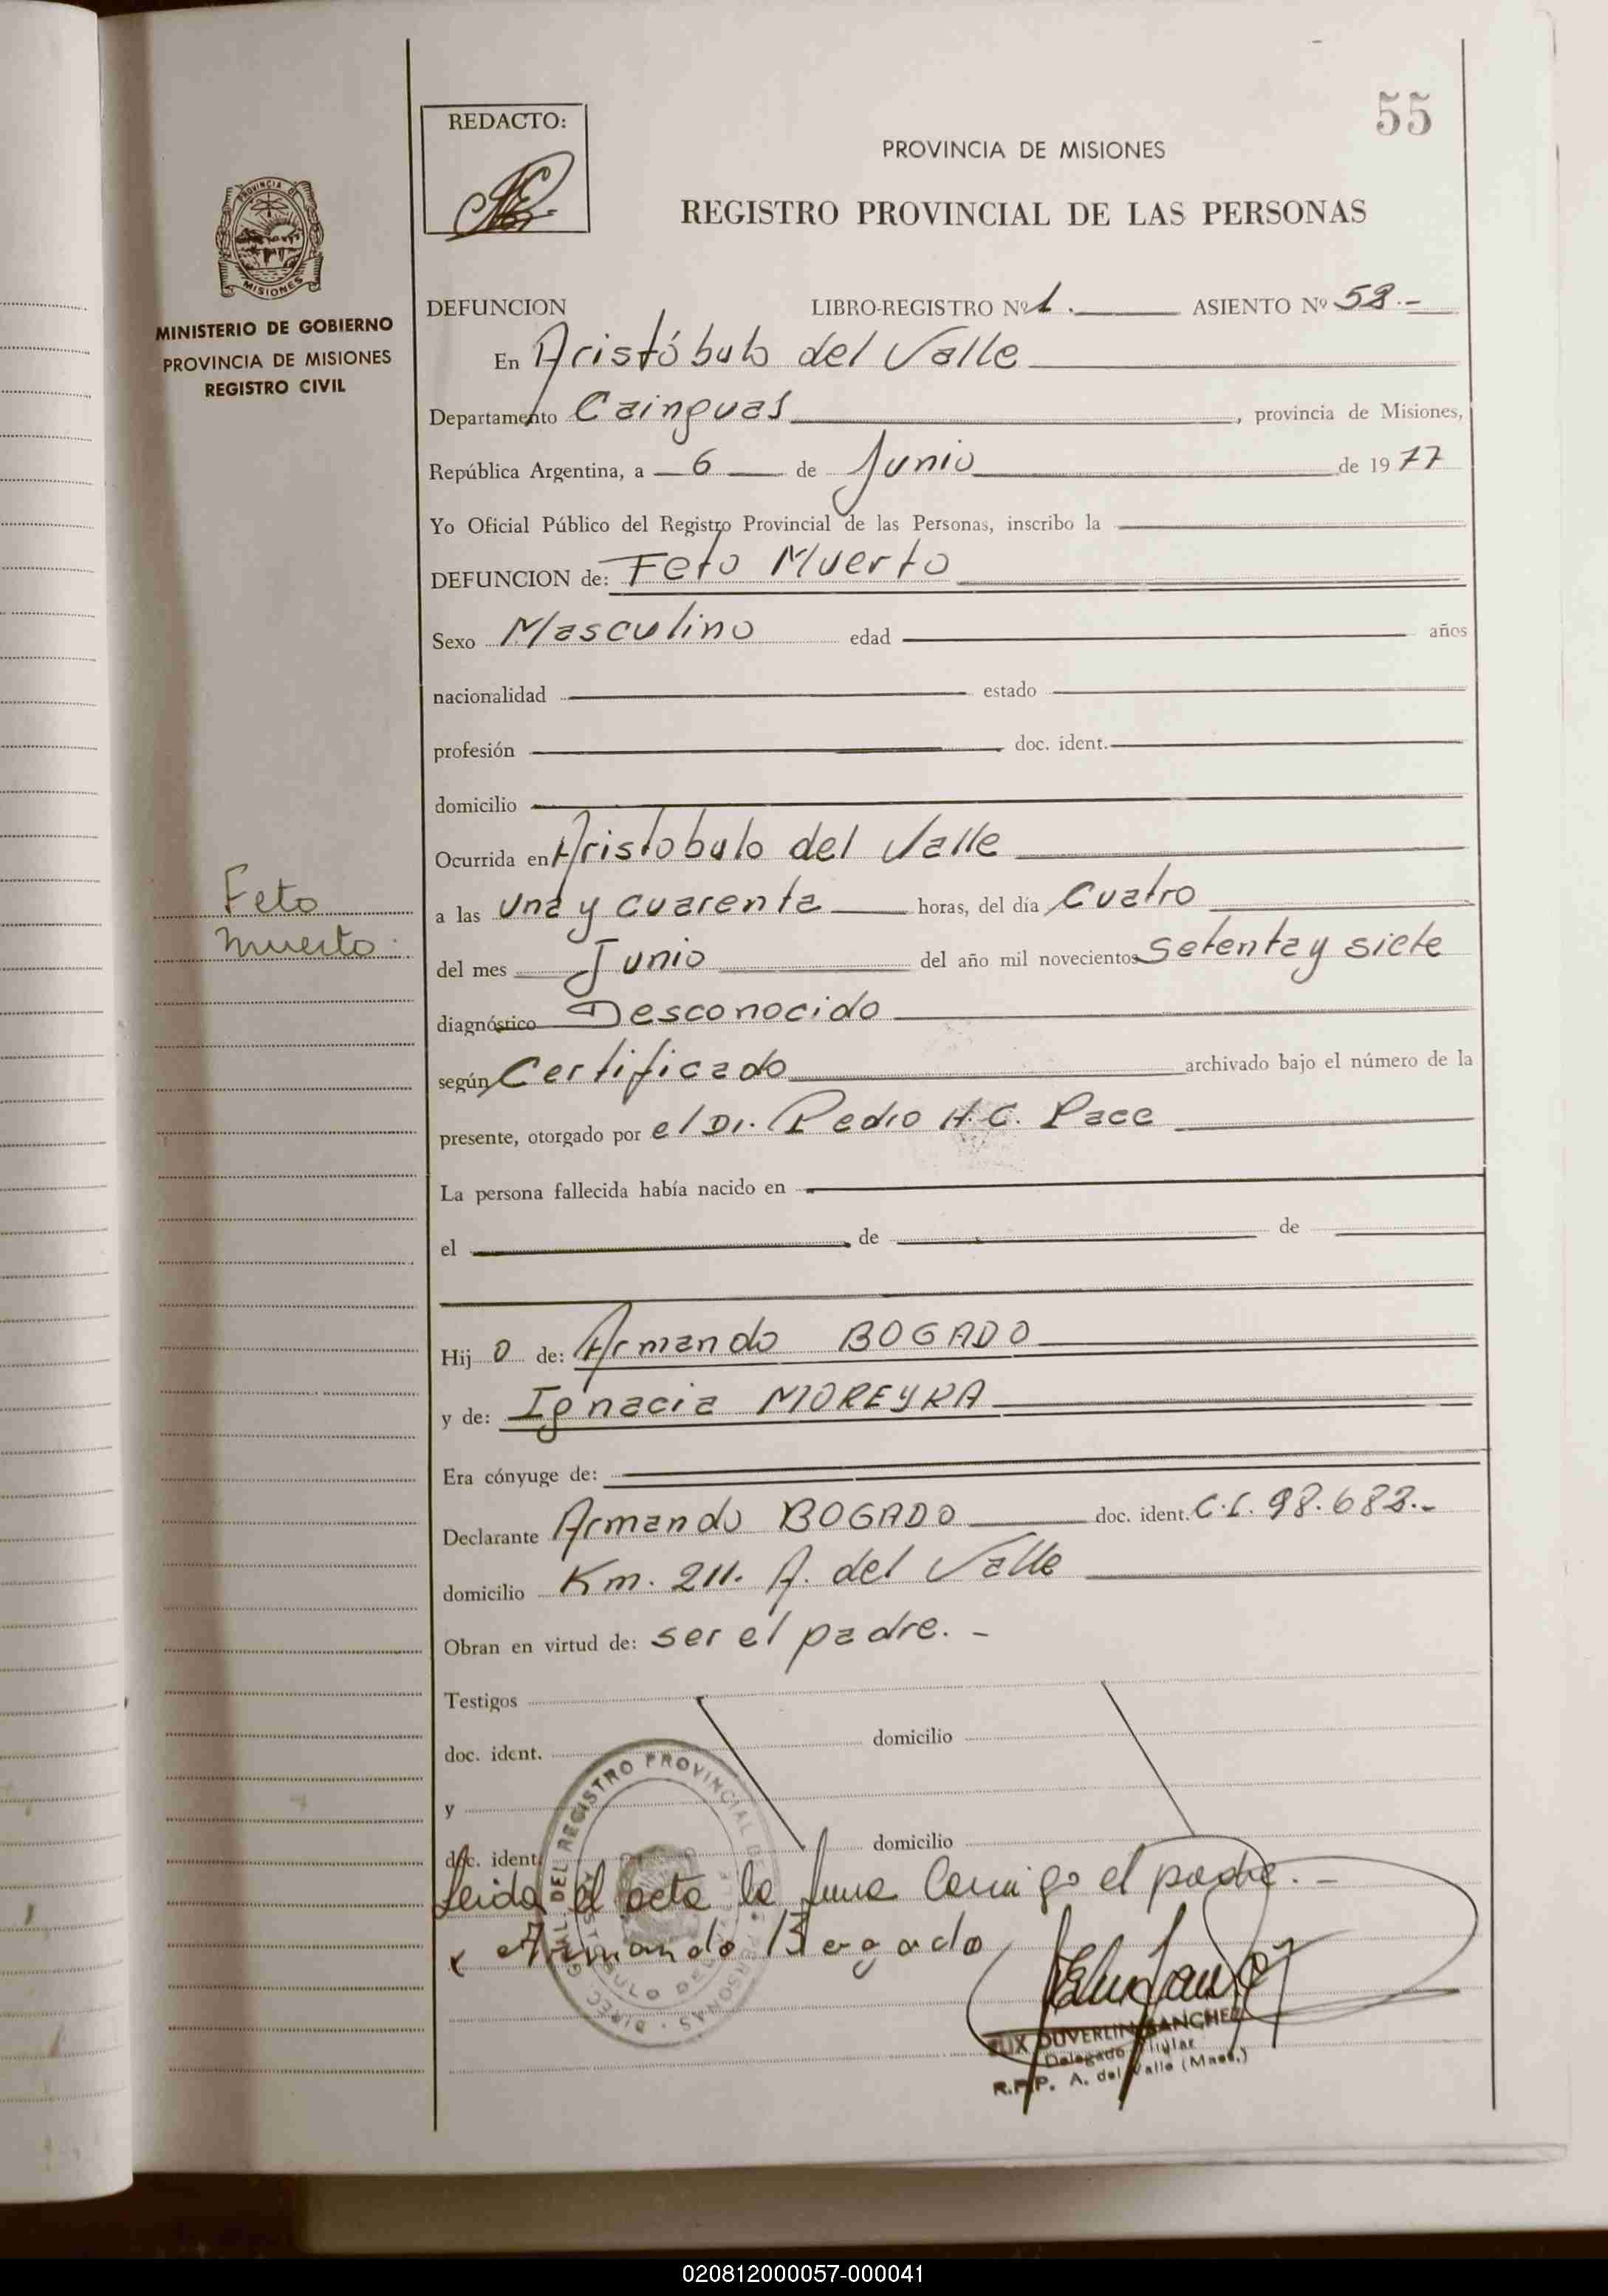 55
REDACTO:
PROVINCIA DE MISIONES
REGISTRO PROVINCIAL DE LAS PERSONAS
PROVINCIA DE
MISIONES
MINISTERIO DE GOBIERNO
PROVINCIA DE MISIONES
REGISTRO CIVIL
DEFUNCION LIBRO-REGISTRO Nº 1. ASIENTO Nº 58.-
En Aristóbulo del Valle
Departamento Cainguas, provincia de Misiones,
República Argentina, a 6 de Junio de 1977
Yo Oficial Público del Registro Provincial de las Personas, inscribo la
DEFUNCION de: Feto Muerto
Sexo Masculino edad años
nacionalidad estado
profesión doc. ident.
domicilio
Ocurrida en Aristobulo del Valle
Feto
muerto.
a las una y cuarenta horas, del día Cuatro
del mes Junio del año mil novecientos setenta y siete
diagnóstico Desconocido
según Certificado archivado bajo el número de la
presente, otorgado por el Dr. Pedro H.C. Pace
La persona fallecida había nacido en
el de de
Hij o de: Armando BOGADO
y de: Ignacia MOREYRA
Era cónyuge de:
Declarante Armando BOGADO doc. ident. C.I. 98.682.-
domicilio Km. 211. A. del Valle
Obran en virtud de: ser el padre.-
Testigos
doc. ident. domicilio
y
doc. ident. domicilio
Leida el acta la firma conmigo el padre.-
x Armando Bogado
DIREC. GRAL. DEL REGISTRO PROVINCIAL DE PERSONAS
DUVERLIN SANCHEZ
Delegado Titular
R.P.P. A. del Valle (Mnes.)
020812000057-000041